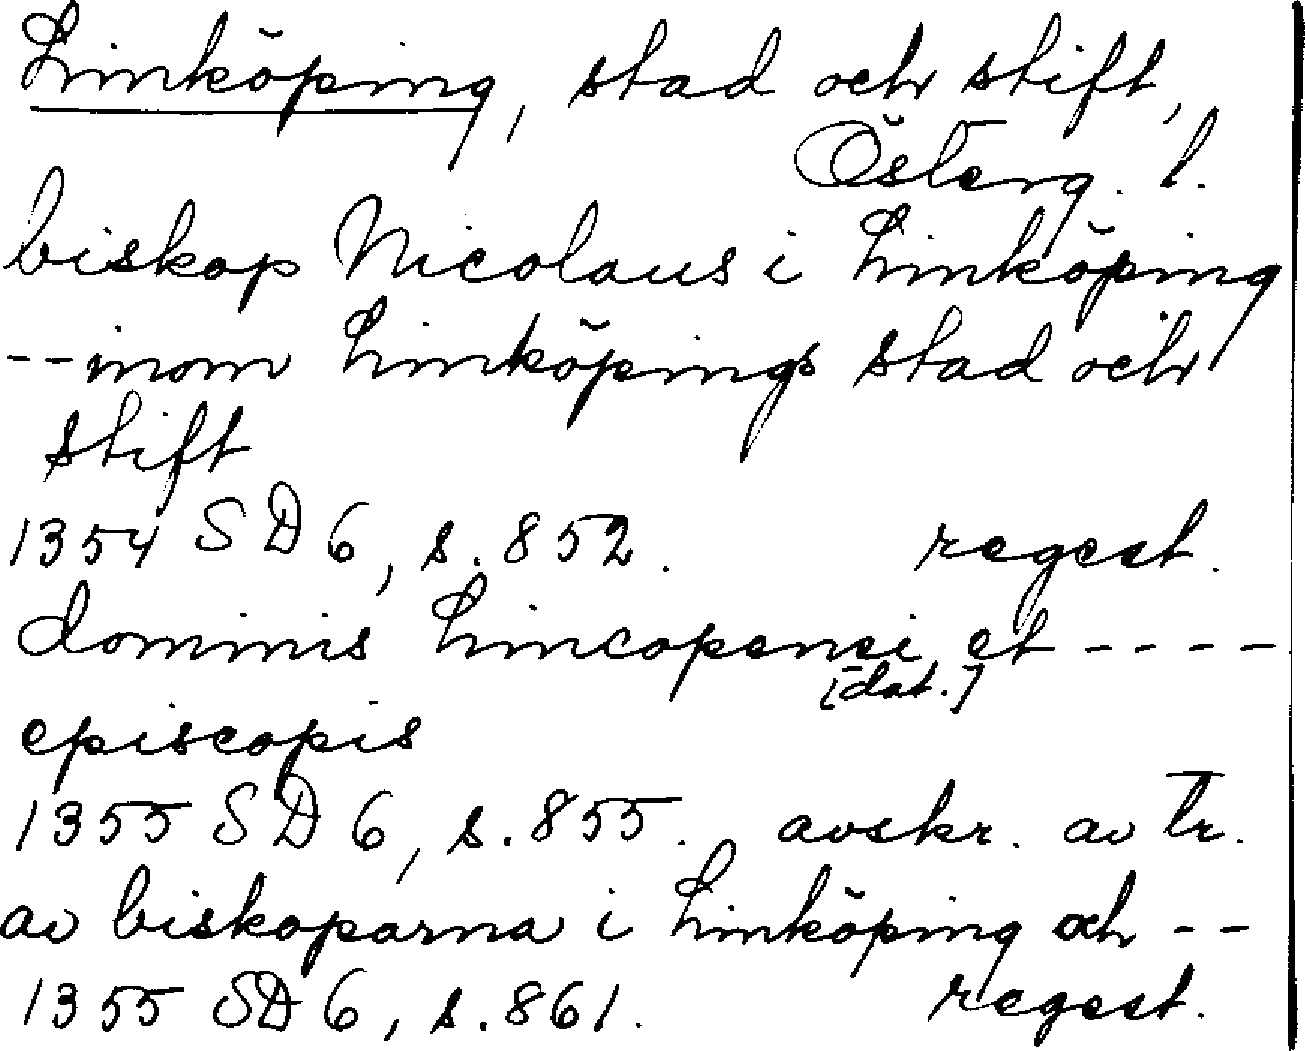 Linköping, stad och stift,
Österg. l.
biskop Nicolaus i Linköping
-- inom Linköpings stad och
stift
1354 SD 6, s. 852. regest.
dominis Lincopensi et ----
[dat.]
episcopis
1355 SD 6, s. 855. avskr. av tr.
av biskoparna i Linköping och --
1355 SD 6, s. 861. regest.